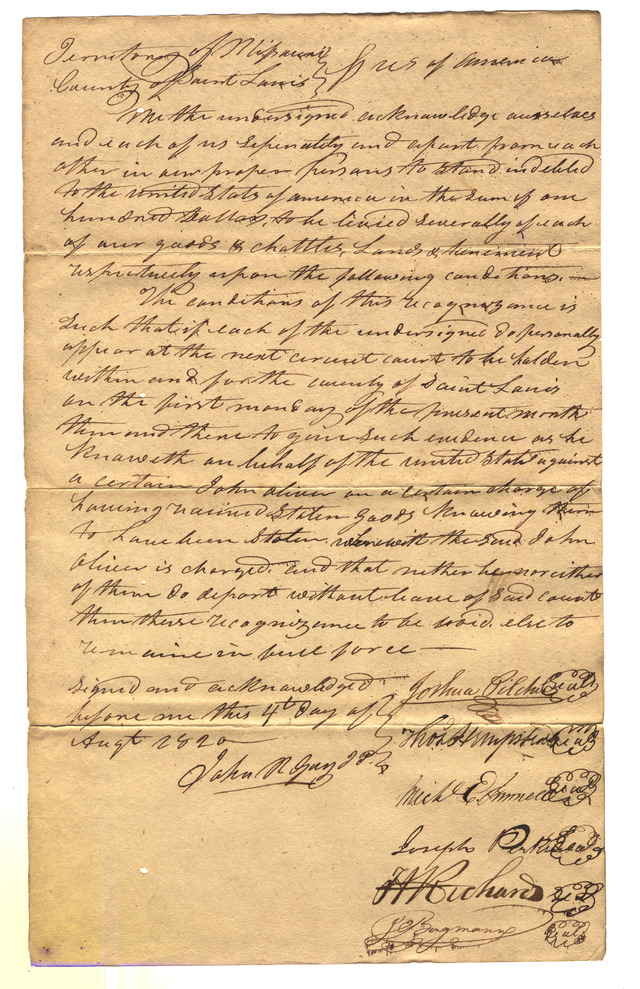 Territory of Missouri } ss U S of America
County of Saint Louis
We the undersigned acknowledge ourselves
and each of us Seperatity and apart from each
other in our proper persons to stand indebted
to the united State of america in the sum of one
hundred Dollars, to be levied Severally of each
of our goods & chattles, Lands & tenement
respectively upon the following conditions. —
The conditions of this recognizance is
Such that if each of the undersigned do personally
appear at the next circuit court to be holden
within and for the county of Saint Louis
on the first monday of the present month
then and there to give Such evidence as he
Knoweth on behalf of the united State against
a certain John oliver on a certain charge of
having Stolen goods Knowing them
to have been Stolen. wherewith the said John
oliver is charged. and that nether he nor either
of them do depart without leave of Said court
then these recognizance to be void. else to
remaine in full force —
Signd and acknowledged
before me this 4th day of
Augt 1820
John R Guy J P.
Joshua Pilcher Seal
Thos Hempstead Seal
Michl E Immell Seal
Joseph Perkins Seal
Richard Seal
Bergmann Seal